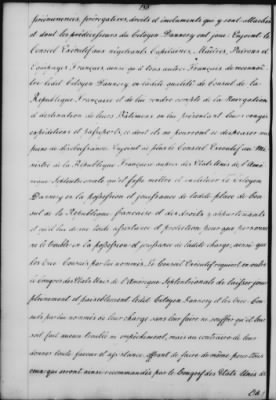 prééminences, prérogatives, droits et émoluments que y sont attachés
et dont les prédécesseurs du Citoyen Dannery ont joui. Enjoint le
Conseil Exécutif aux négotians, Capitaines, Maîtres, Patrons et
Equipages Français, ainsi qu'à tous autres Français de reconnoî-
tre ledit Citoyen Dannery en ladite qualité de Consul de la
République Française et de lui rendre compte de la Navigation
et destination de leurs Bâtimens en lui présentant leurs congés,
expéditions et passeports, ce dont ils ne pourront se dispenser sous
peine de désobeissance. Enjoint de plus le Conseil Exécutif au Mi-
nistre de la République Française auprès des Etats Unis de l'Amé-
rique Septentrionale qu'il fasse mettre et instituer le Citoyen
Dannery en la possession et jouissance de ladite place de Con-
sul de la République française et des droits y appartenants
et qu'il lui donne toute assistance et protection, pour que personne
ne le trouble en la possession et jouissance de ladite charge, ainsi que
les Vice Consuls par lui nommés. Le Conseil Exécutif requiert en outre
le Congrès des Etats Unis de l'Amérique Septentrionale de laisser jouir
pleinement et paisiblement ledit Citoyen Dannery et les Vice Con-
suls par lui nommés de leur charge sans leur faire ni souffrir qu'il leur
soit fait aucun trouble ni empêchement, mais au contraire de leur
donner toute faveur et assistance offrant de faire de même pour tous
ceux qui seront ainsi recommandés par le Congrès des Etats Unis de